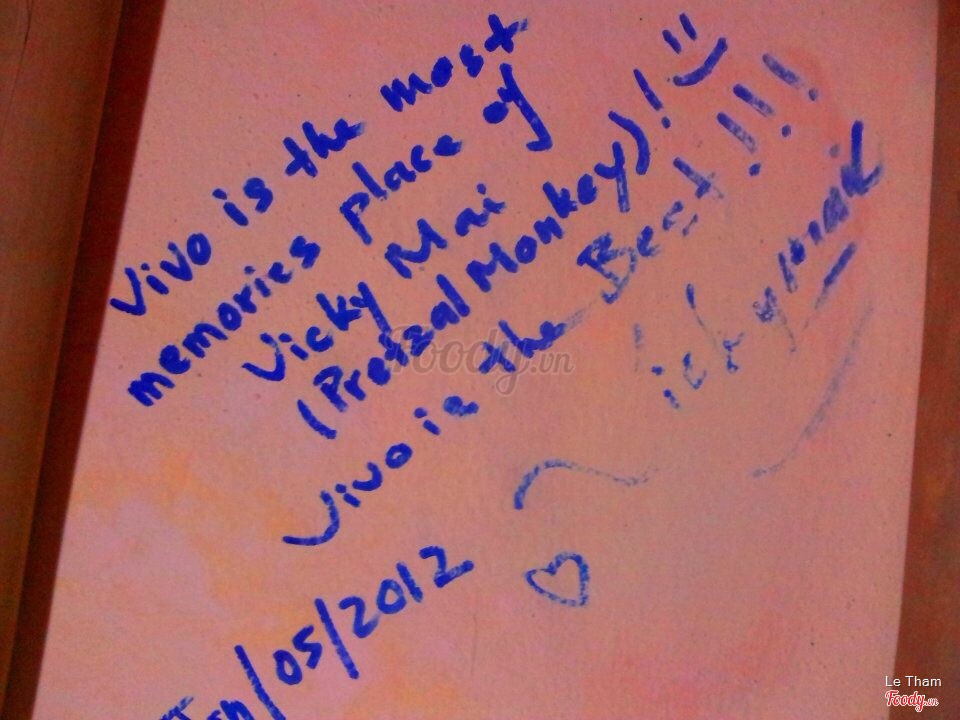 Vivo is the most
memories place of
Vicky Mai
(PretzalMonkey)!
Vivo is the Best!!!
/05/2012
Foody.vn
Le Tham
Foody.vn